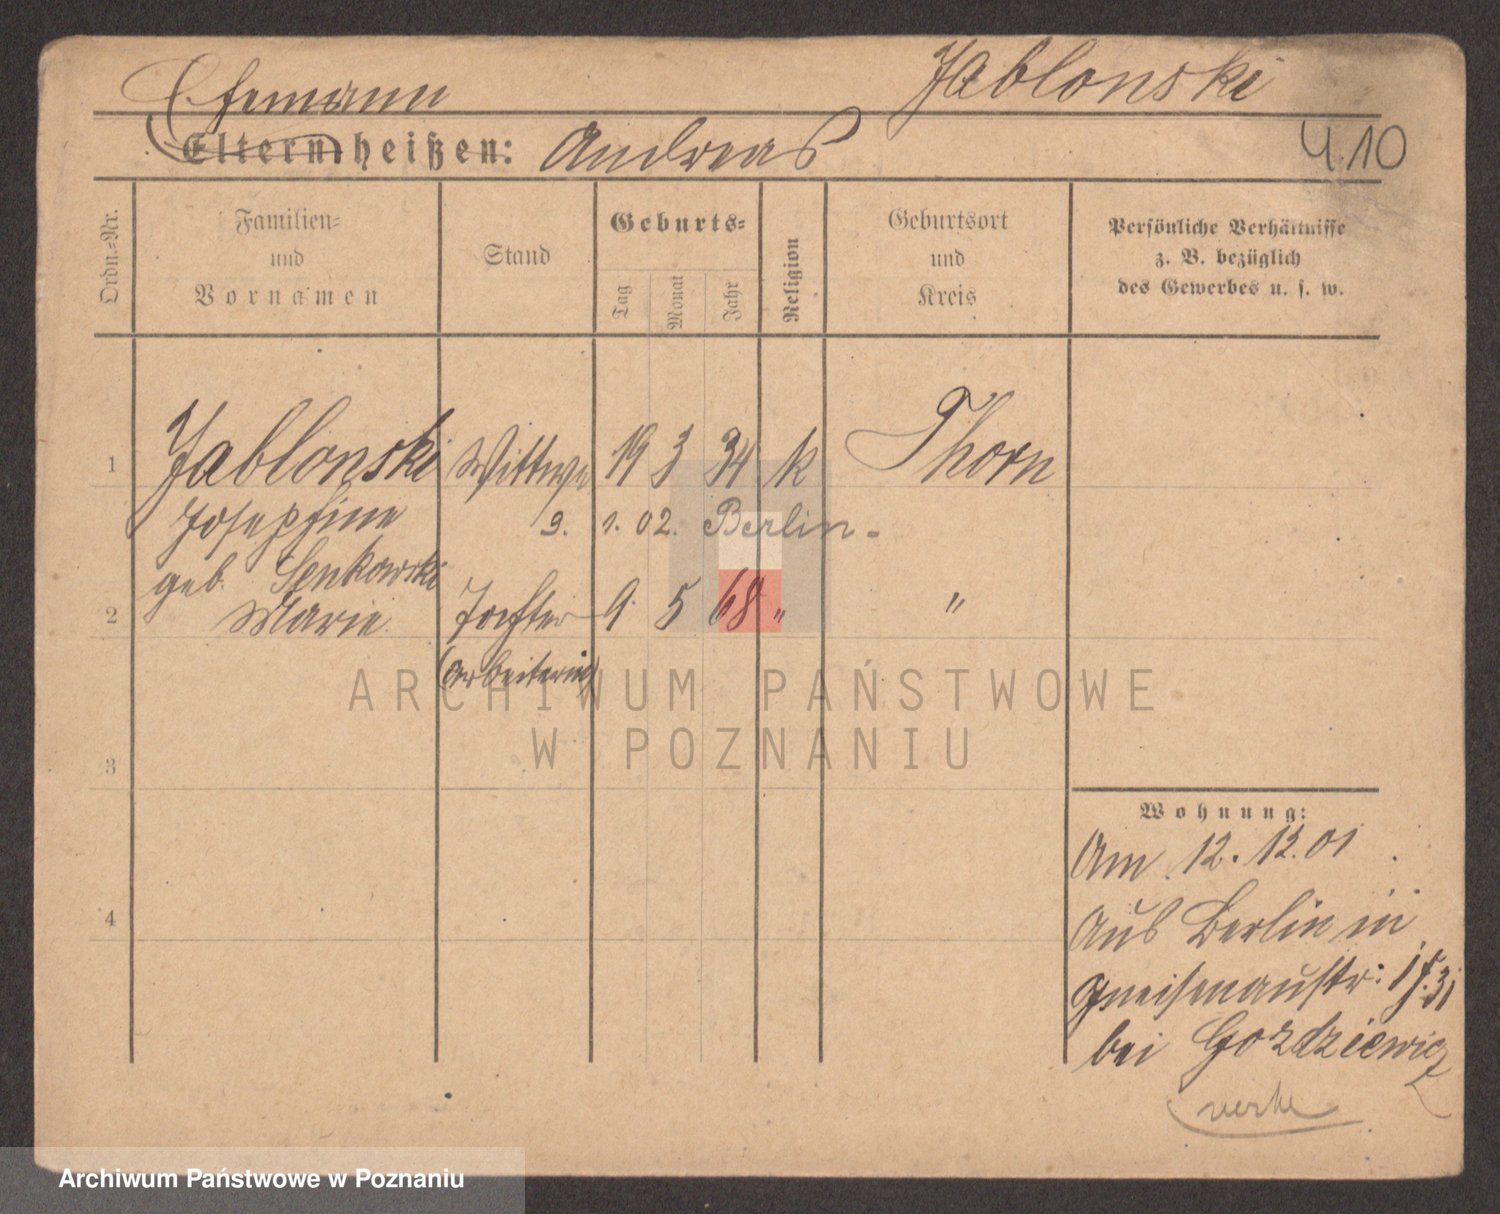 Ehemann Jablonski
Eltern heißen: Andreas 4.10
Ordn.=Nr.
Familien=
und
Vornamen
Stand
Geburts=
Tag
Monat
Jahr
Religion
Geburtsort
und
Kreis
Persönliche Verhältnisse
z. B. bezüglich
des Gewerbes u. s. w.
1 Jablonski Wittwe 19 3 34 k Thorn
Josephine 9. 1. 02. Berlin -
geb. Senkowski
2 Marie Tochter 9. 5 68 " "
(Arbeiterin)
3
4
Wohnung:
Am 12. 12. 01
Aus Berlin in
Gneisenaustr:
bei Gozdziewicz
ARCHIWUM PAŃSTWOWE
W POZNANIU
Archiwum Państwowe w Poznaniu